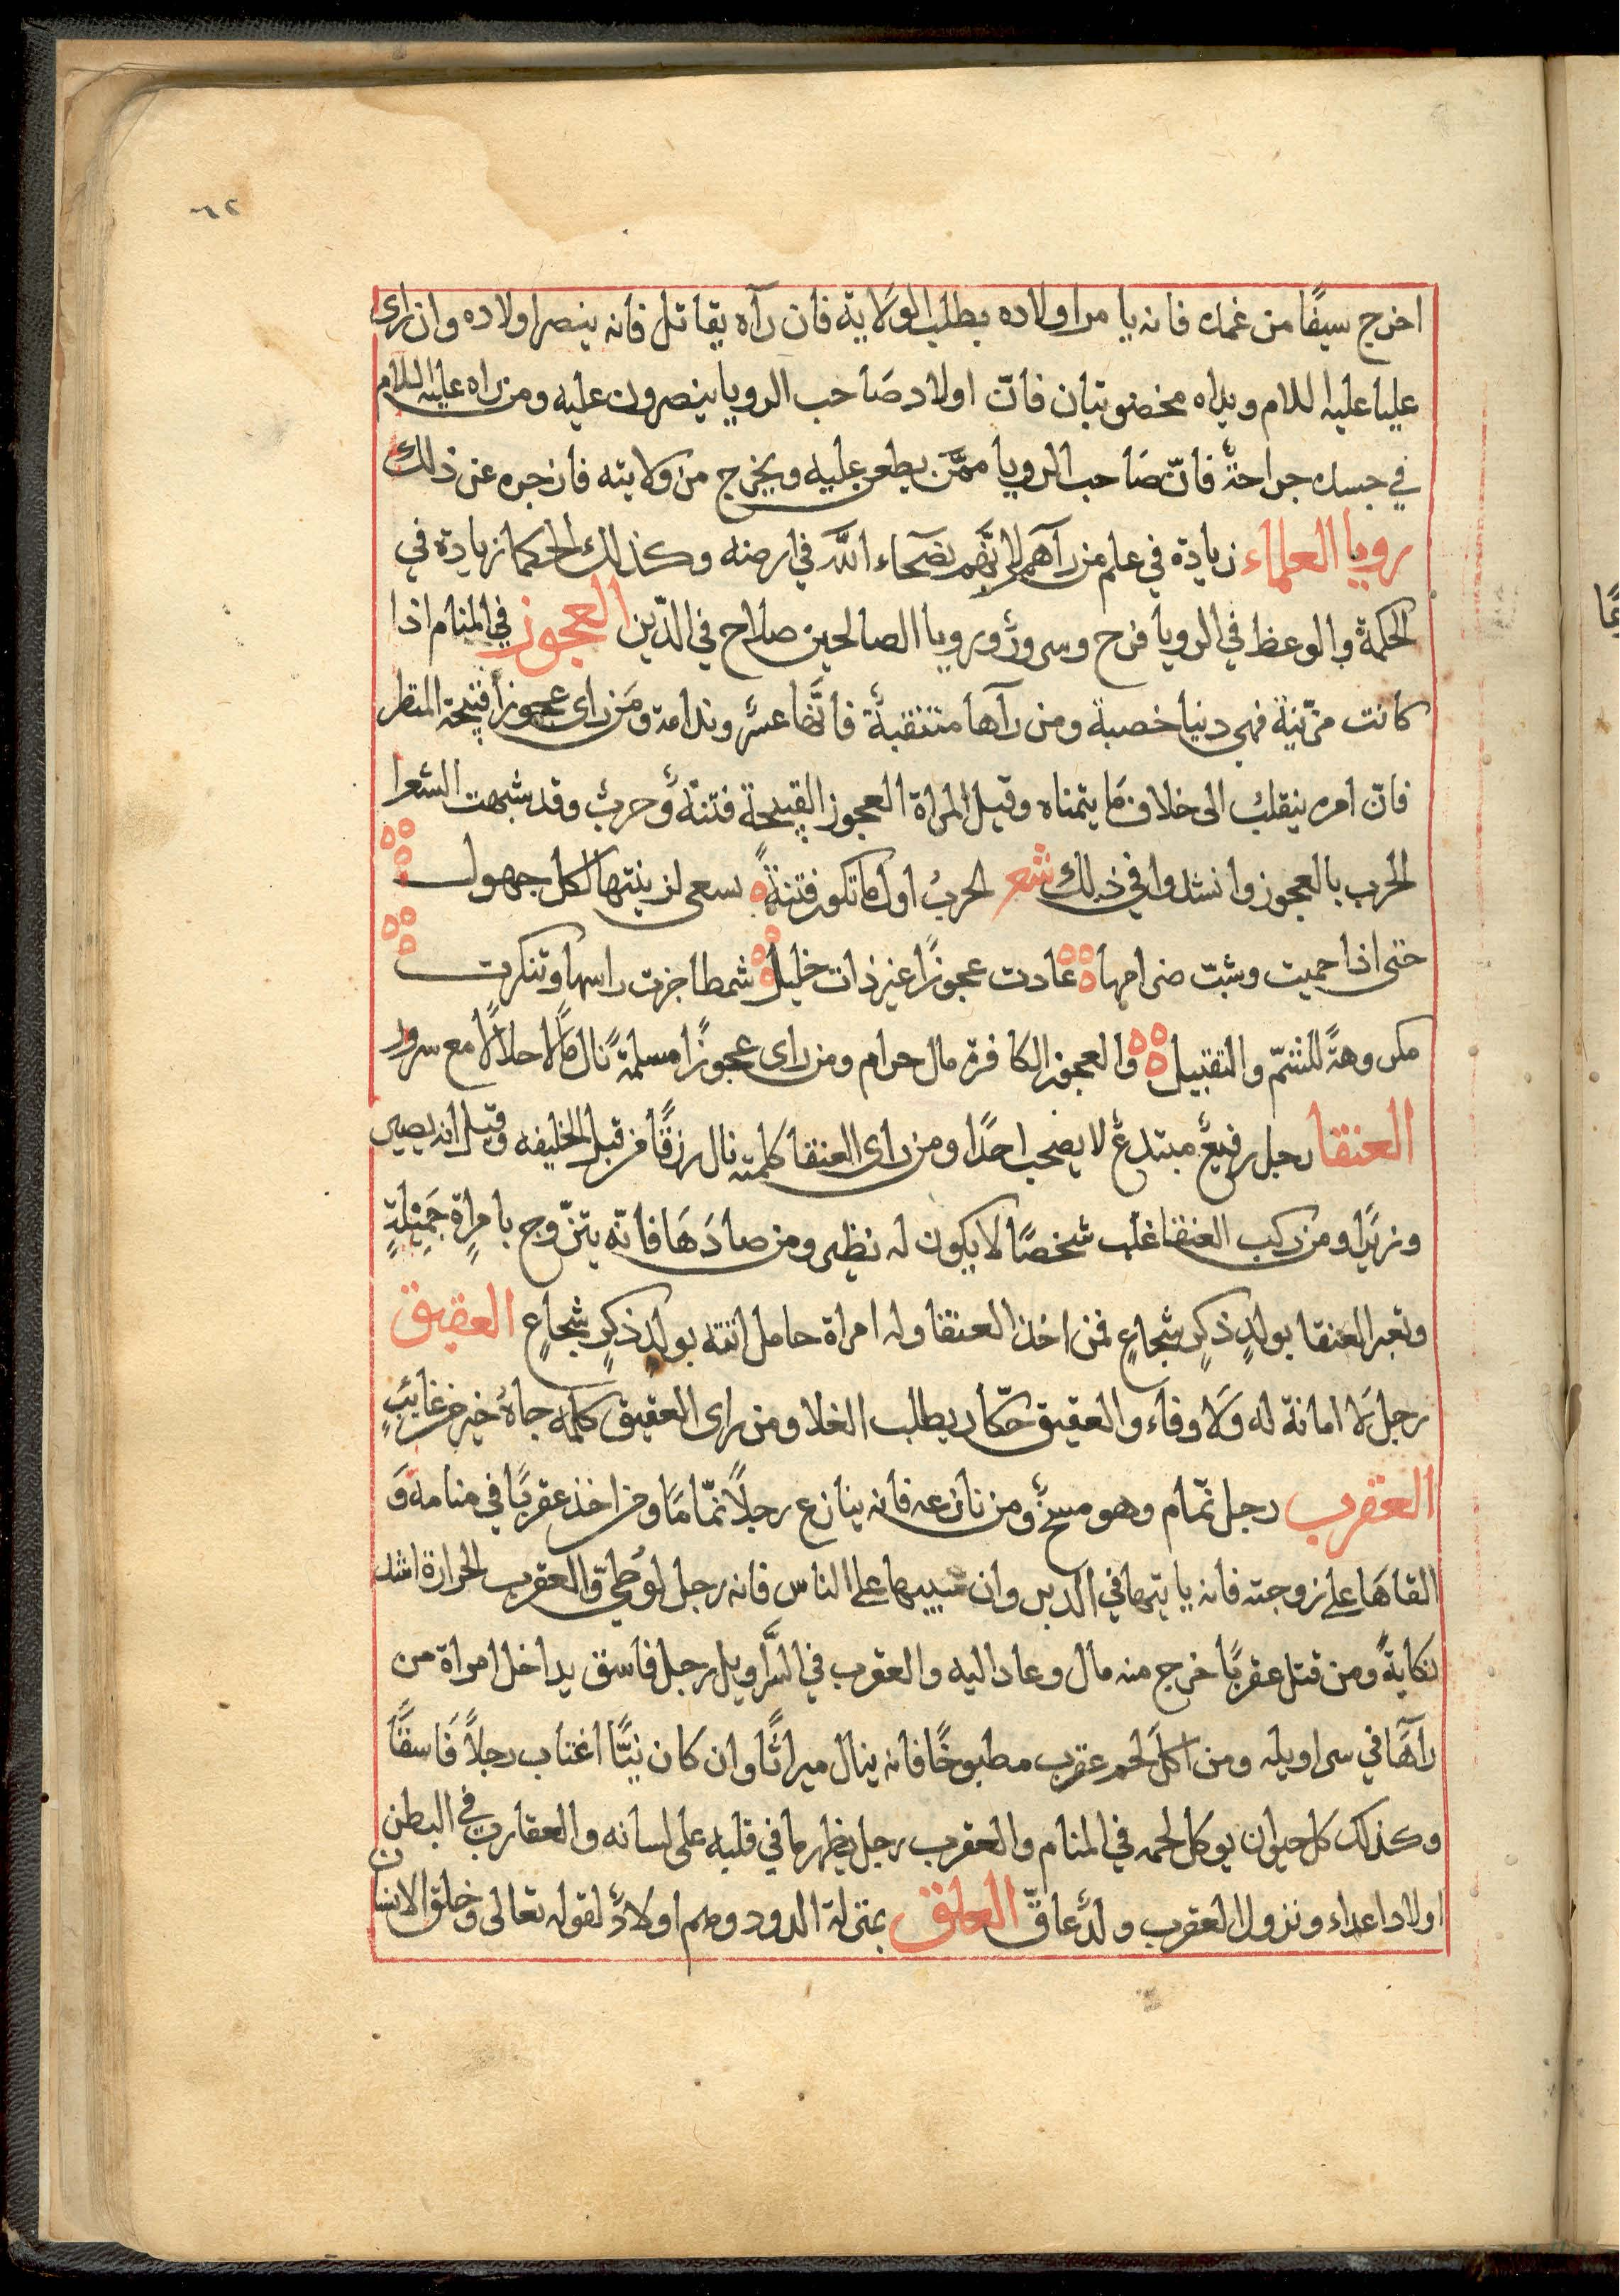 ٦٢
اخرج سيفًا من غمده فانه يامر اولاده بطلب الولاية فان رآه يقاتل فانه ينصر اولاده وان راى
عليا عليه السلام ويداه مخضوبتان فانّ اولاد صَاحب الرويا ينصرون عليه ومن راه عليه السلام
في جسده جراحةٌ فانّ صَاحب الرويا ممّن يطعن عليه ويخرج من ولايته فازجره عن ذلك
رويا العلماء زيادة في علم من رآهم لانّهم نصحاء الله في ارضه وكذلك الحكما زيادة في
الحكمة والوعظ في الرويا فرح وسرورٌ ورويا الصالحين صلاح في الدّين العجوز في المنام اذا
كانت مزّينة فهي دنيا خصبة ومن رآها متنقبةٌ فانَّها عسر وندامة ومَن راى عجوزًا قبيحة المنظر
فانّ امره ينقلب الى خلاف مَا يتمناه وقيل المراة العجوز القبيحة فتنةٌ وحربٌ وقد شبهت الشعرا
الحرب بالعجوز وانشدوا في ذلك شعر الحربُ اول ما تكون فتنةً يسعى لزينتها لكل جهول
حتى اذا حميت وشبّت ضرامها عادت عجوزًا غير ذات خليل شمطا جزت راسها وتنكرت
مكروهةً للشمّ والتقبيل والعجوز الكافرة مال حرام ومن راى عجوزًا مسلمةً نال مَالا حلالًا مع سرور
العنقا رجل رفيعٌ مبتدعٌ لا يصحب احدًا ومن راى العنقا كلمته نال رزقًا من قبل الخليفه وقيل انه يصير
وزيرًا ومن ركب العنقا غلب شخصًا لا يكون له نظير ومن صادَهَا فانّه يتزّوج بامراةٍ جَمِيْلةٍ
وتعبر العنقا بولدٍ ذكرٍ شجاعٍ فمن اخذ العنقا وله امراة حامل اتته بولدٍ ذكرٍ شجاعٍ العقيق
رجل لَا امانة له وَلَا وفاء والعقيق حكّار يطلب الغلا ومن راى العقيق كلمه جاهُ خبر من غايبٍ
العقرب رجل نمّام وهو مسخٌ ومن نازعه فانه ينازع رجلًا نمّامًا ومن اخذ عقربًا في منامه وَ
القاهَا على زوجته فانه ياتيها في الدبر وان سيبها على الناس فانه رجل لوُطيّ والعقرب الحرارة اشد
نكايةً ومن قتل عقربًا خرج منه مال وعاد اليه والعقرب في السَّراويل رجل فاسق يداخل امراة من
رآهَا في سراويله ومن اكلَ لحم عقرب مطبوخًا فانه ينال ميراثًا وان كان نيًّا اغتاب رجلًا فَاسقًا
وكذلك كل حيوان يوكل لحمه في المنام والعقرب رجل يظهر ما في قلبه على لسانه والعقارب في البطن
اولاد اعداء ونزول العقرب ولدٌ عاقّ العلق بمنزلة الدود وهم اولادٌ لقوله تعالى وخلق الانسان